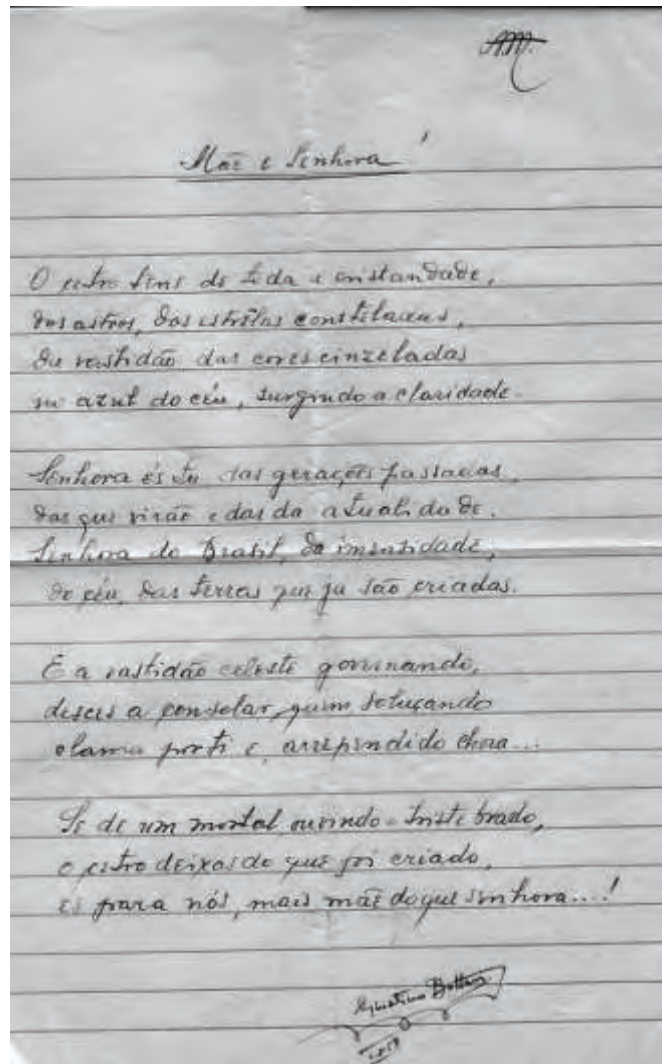 AM.
Mãe e Senhora!
O cetro tens de toda a cristandade,
dos astros, das estrêlas consteladas,
da vastidão das cores cinzeladas
no azul do céu, surgindo a claridade.
Senhora és tu das gerações passadas,
das que virão e das da atualidade.
Senhora do Brasil, da imensidade,
do céu, das terras que já são criadas.
E a vastidão celeste governando,
desces a consolar, quem soluçando
clama por ti e, arrependido chora...
Se de um mortal ouvindo o triste brado,
o cetro deixas do que foi criado,
és para nós, mais mãe do que senhora....!